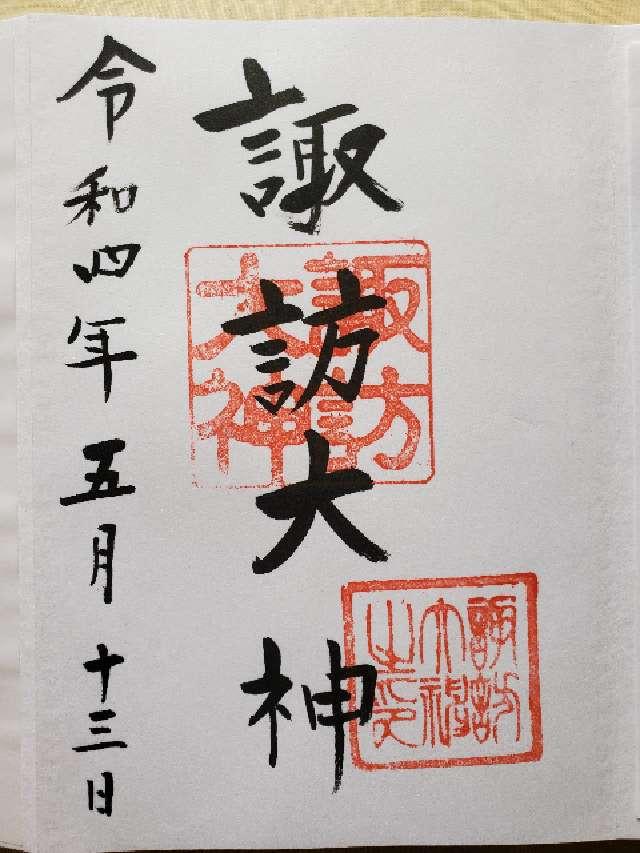 諏訪大神
諏訪
大神
諏訪
大神
之印
令和四年五月十三日